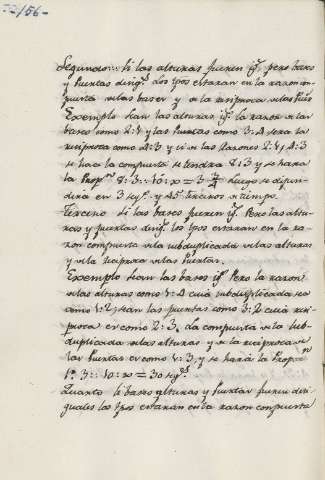 Segundo: Si las alturas fueren ig.s pero bases
y Puertas desig.s Los tpos estaran en la razon com-
puesta de las bases y de la reciproca de las Puertas
Exemplo sean las alturas ig.s la razon de las
bases como 2: 1 y las Puertas como 3: 4 sera la
reciproca como 4: 3 y si de las razones 2: 1, 4: 3
se hace la compuesta se tendra 8: 3 y se hara
la Prop.on 8: 3:: 10: x = 3 3/4 luego se difun-
dira en 3 seg.s y 45 terceros de tiempo.
Tercero Si las bases fueren ig.s Pero las altu-
ras y puertas desig.s los tpos estaran en la ra-
zon compuesta de la subduplicada de las alturas
y de la reciproca de las Puertas.
Exemplo sean las bases ig.s Pero la razon
de las alturas como 1: 4 cuia subduplicada sea
como 1: 2; sean las puertas como 3: 2 cuia reci-
proca es como 2: 3. La compuesta de la sub-
duplicada de las alturas y de la reciproca de
las Puertas es como 1: 3, y se hará la Prop.on
1: 3:: 10: x = 30 seg.s
Quarto Si bases alturas y Puertas fueren desi-
guales los tpos estaran en la razon compuesta